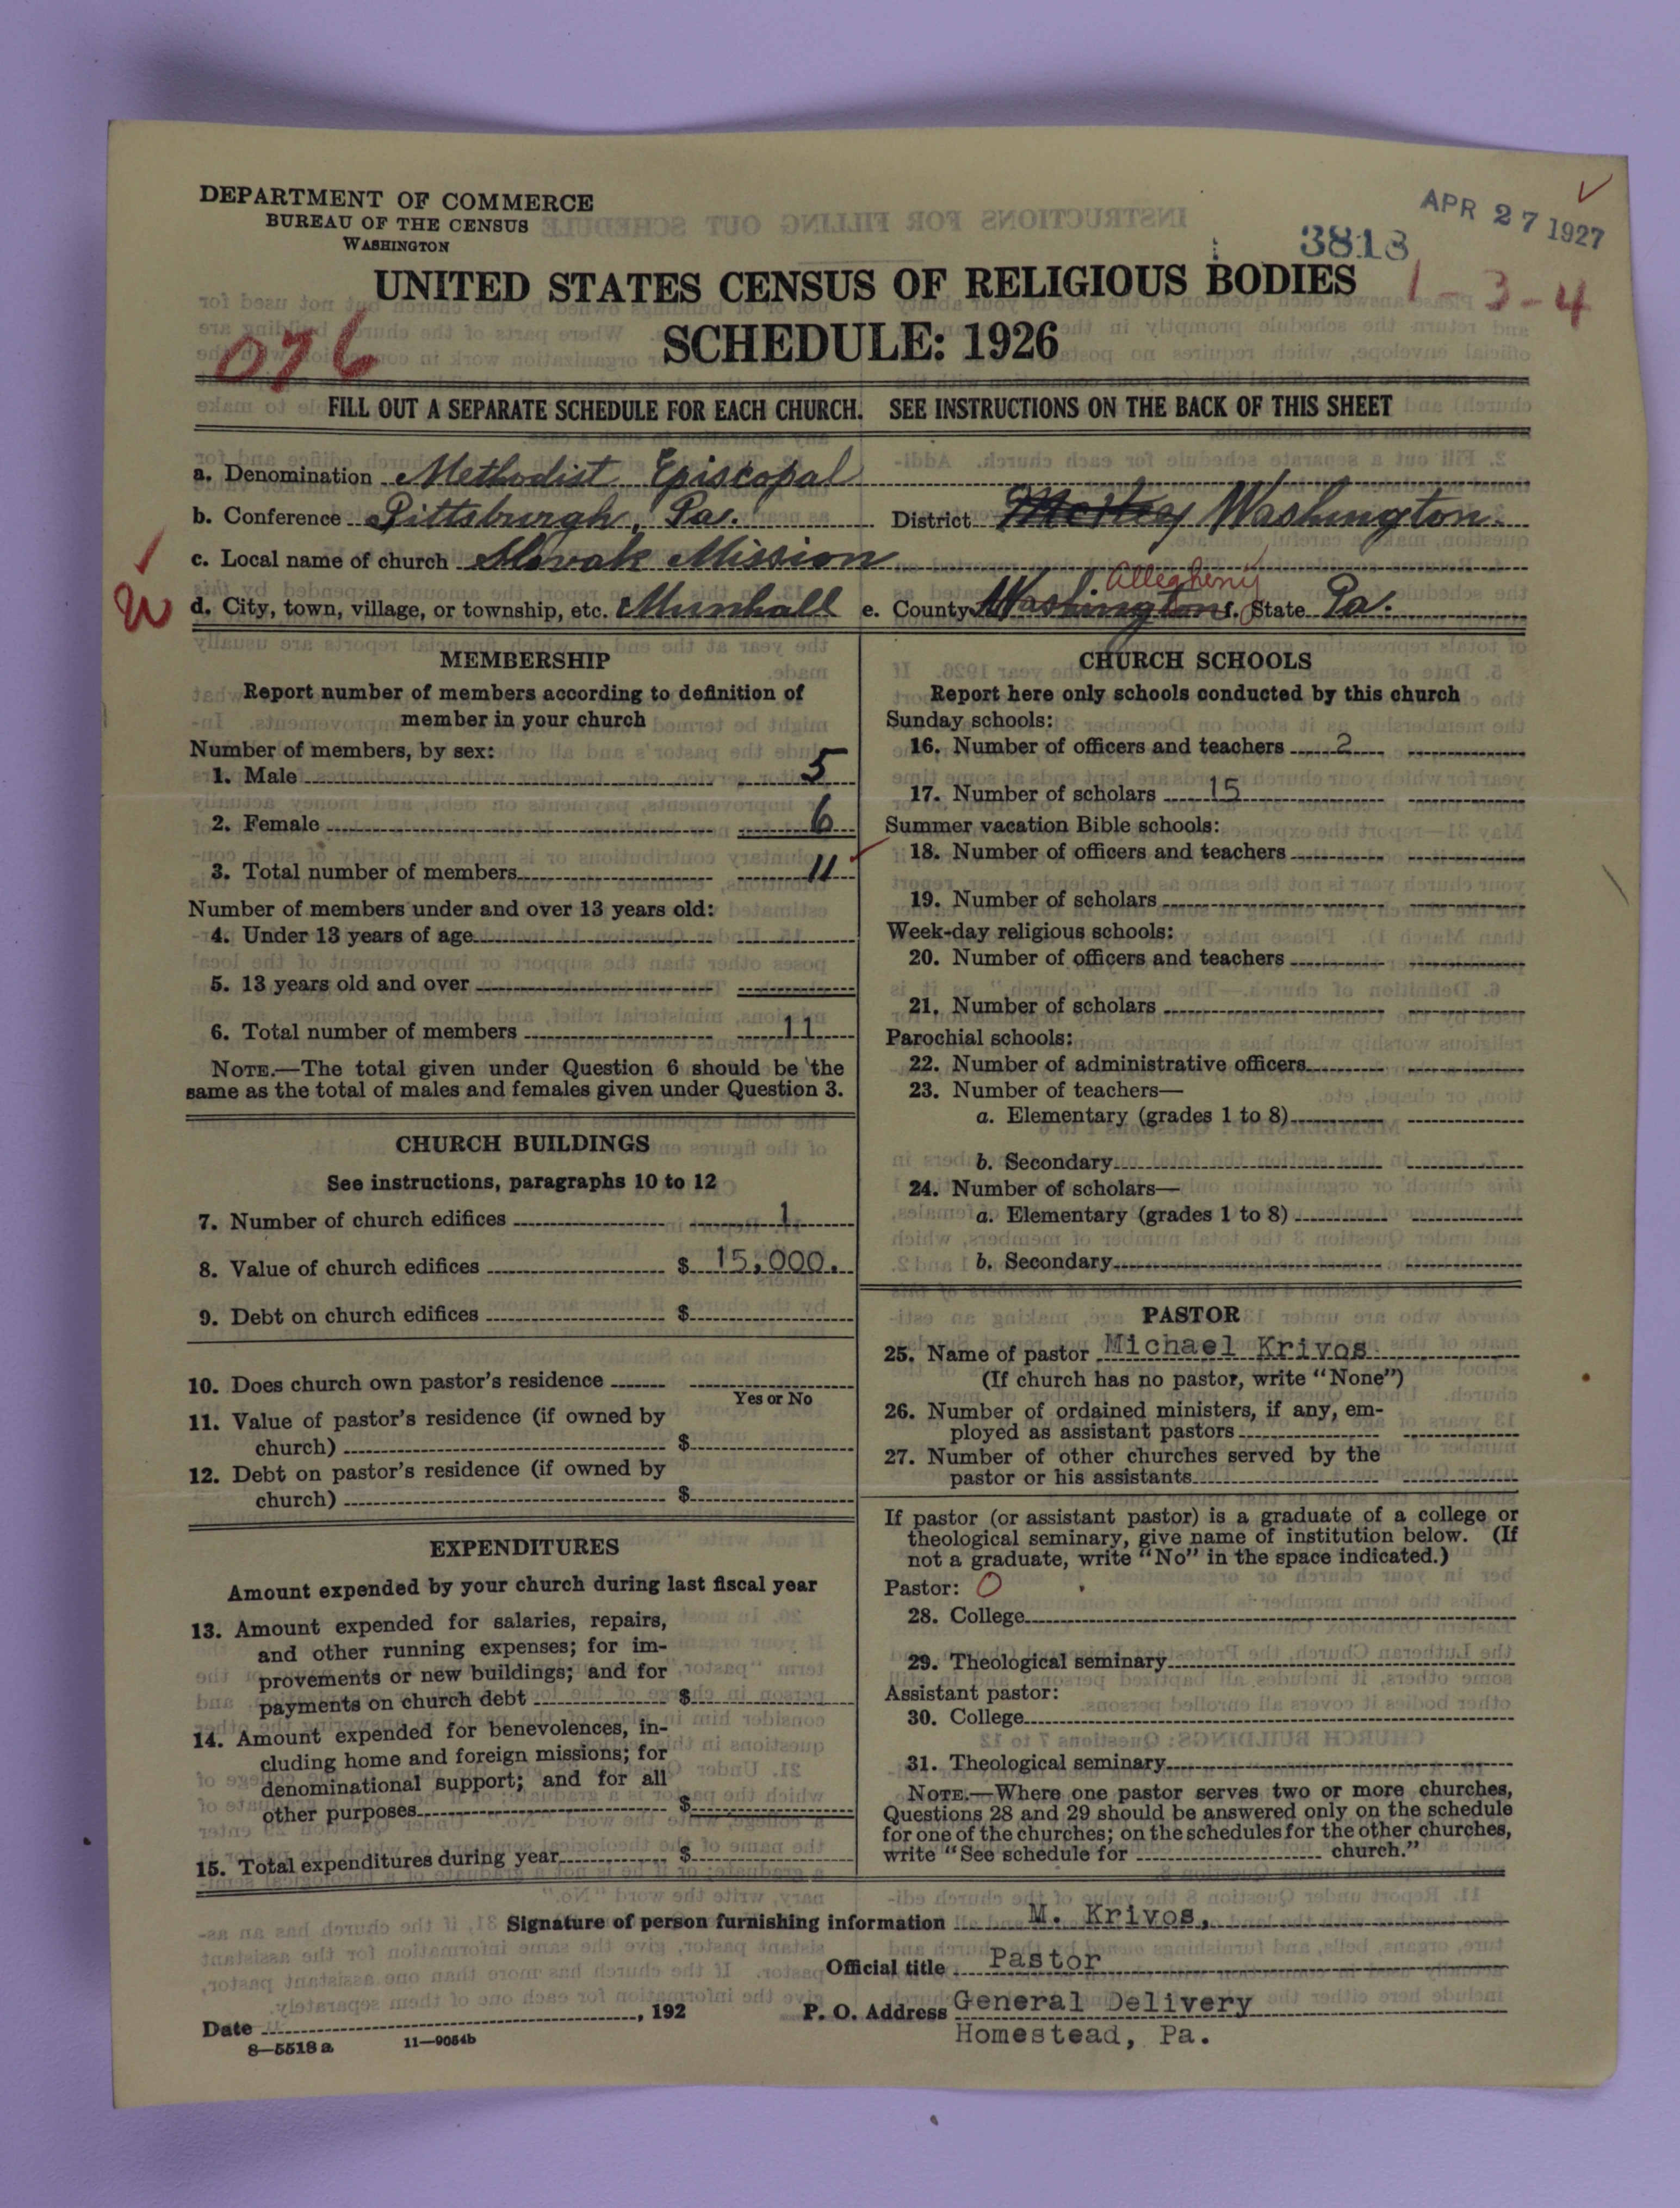 DEPARTMENT OF COMMERCE
BUREAU OF THE CENSUS
WASHINGTON
APR 27 1927
3818
UNITED STATES CENSUS OF RELIGIOUS BODIES
1-3-4
SCHEDULE: 1926
076
FILL OUT A SEPARATE SCHEDULE FOR EACH CHURCH. SEE INSTRUCTIONS ON THE BACK OF THIS SHEET
a. Denomination Methodist Episcopal
b. Conference Pittsburgh, Pa. District Washington
c. Local name of church Slovak Mission
d. City, town, village, or township, etc. Munhall e. County Washington Allegheny f. State Pa.
MEMBERSHIP
Report number of members according to definition of
member in your church
Number of members, by sex:
1. Male 5
2. Female 6
3. Total number of members 11
Number of members under and over 13 years old:
4. Under 13 years of age
5. 13 years old and over
6. Total number of members 11
NOTE.—The total given under Question 6 should be the
same as the total of males and females given under Question 3.
CHURCH BUILDINGS
See instructions, paragraphs 10 to 12
7. Number of church edifices 1
8. Value of church edifices $ 15,000.
9. Debt on church edifices $
10. Does church own pastor's residence
Yes or No
11. Value of pastor's residence (if owned by
church) $
12. Debt on pastor's residence (if owned by
church) $
EXPENDITURES
Amount expended by your church during last fiscal year
13. Amount expended for salaries, repairs,
and other running expenses; for im-
provements or new buildings; and for
payments on church debt $
14. Amount expended for benevolences, in-
cluding home and foreign missions; for
denominational support; and for all
other purposes $
15. Total expenditures during year $
CHURCH SCHOOLS
Report here only schools conducted by this church
Sunday schools:
16. Number of officers and teachers 2
17. Number of scholars 15
Summer vacation Bible schools:
18. Number of officers and teachers
19. Number of scholars
Week-day religious schools:
20. Number of officers and teachers
21. Number of scholars
Parochial schools:
22. Number of administrative officers
23. Number of teachers—
a. Elementary (grades 1 to 8)
b. Secondary
24. Number of scholars—
a. Elementary (grades 1 to 8)
b. Secondary
PASTOR
25. Name of pastor Michael Krivos
(If church has no pastor, write "None")
26. Number of ordained ministers, if any, em-
ployed as assistant pastors
27. Number of other churches served by the
pastor or his assistants
If pastor (or assistant pastor) is a graduate of a college or
theological seminary, give name of institution below. (If
not a graduate, write "No" in the space indicated.)
Pastor: O
28. College
29. Theological seminary
Assistant pastor:
30. College
31. Theological seminary
NOTE.—Where one pastor serves two or more churches,
Questions 28 and 29 should be answered only on the schedule
for one of the churches; on the schedules for the other churches,
write "See schedule for church."
Signature of person furnishing information M. Krivos,
Official title Pastor
Date , 192 P. O. Address General Delivery
Homestead, Pa.
8—5518 a 11—9054b